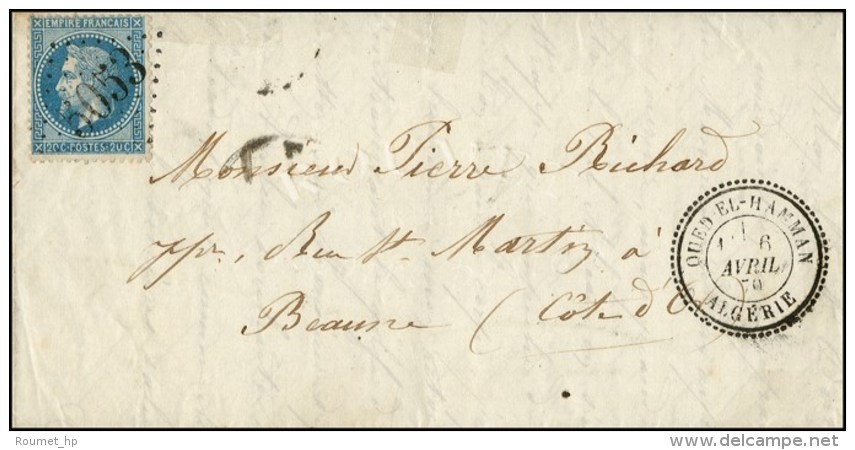 EMPIRE FRANÇAIS
5053
20C·POSTES·20C
Monsieur Pierre Richard
ppre, Rue St Martin à
Beaune (Côte d'Or)
OUED-EL-HAMMAN
6
AVRIL
70
ALGÉRIE
Roumet_hp
delcampe.net